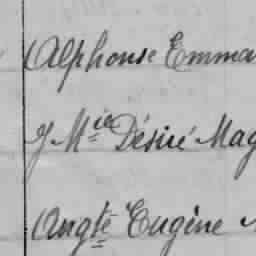 Alphonse Emma
J Mie Désiré Mag
Augte Eugène